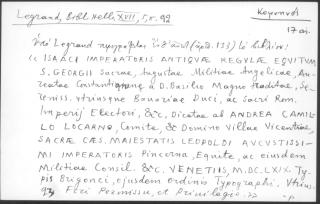 Legrand, Bibl. Hell. XVII, 5, σ. 92
Κορωνιός
17 αι.
Ὑπὸ Legrand περιγράφεται (ἀρ. 133) τὸ βιβλίον:
« ISAACI IMPERATORIS ANTIQVÆ REGVLÆ EQVITVM
S. GEORGII Sacrae, Augustae Militiae Angelicae, Au-
reatae Constantinianae a D. Basilio Magno traditae, Se-
reniss. vtriusque Bauariae Duci, ac Sacri Rom.
Imperij Electori, &c, Dicatae al ANDREA CAMIL-
LO LOCARNO, Comite, & Domino Villae Vicentiae,
SACRÆ CÆS. MAIESTATIS LEOPOLDI AVGVSTISSI-
MI IMPERATORIS Pincerna, Equite, ac eiusdem
Militiae Consil. &c. VENETIIS, M.DC.LXIX. Ty-
pis Brigonci, eiusdem ordinis Typographi.
Permissu, et Privilegio. »